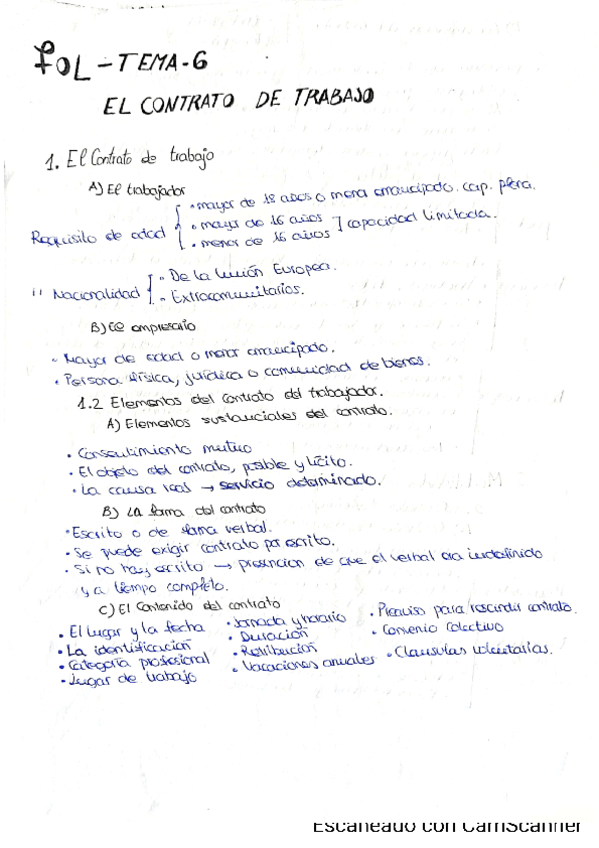 FOL - TEMA-6
EL CONTRATO DE TRABAJO
1. El Contrato de trabajo
A) El trabajador
• mayor de 18 años o menor emancipado. cap. plena.
Requisito de edad • mayor de 16 años
• menor de 16 años ] capacidad limitada.
" Nacionalidad • De la Unión Europea.
• Extracomunitarios.
B) El empresario
• Mayor de edad o menor emancipado.
• Persona física, jurídica o comunidad de bienes.
1.2 Elementos del contrato del trabajador.
A) Elementos sustanciales del contrato.
• Consentimiento mutuo
• El objeto del contrato, posible y lícito.
• La causa → servicio determinado.
B) La forma del contrato
• Escrito o de forma verbal.
• Se puede exigir contrato por escrito.
• Si no hay escrito → presuncion de que el verbal era indefinido
y a tiempo completo.
C) El Contenido del contrato
• El lugar y la fecha • Jornada y horario • Preaviso para rescindir contrato.
• La identificación • Duración • Convenio colectivo
• Categoría profesional • Retribución • Clausulas voluntarias.
• Lugar de trabajo • Vacaciones anuales
Escaneado con CamScanner